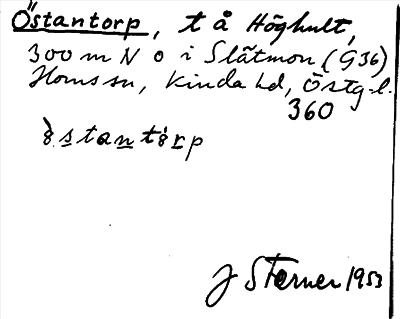 Östantorp, t å Höghult,
300 m N o i Slätmon (G36)
Homssn, Kinda hd, Östg. l.
360
östantörp
J Sterner 1953